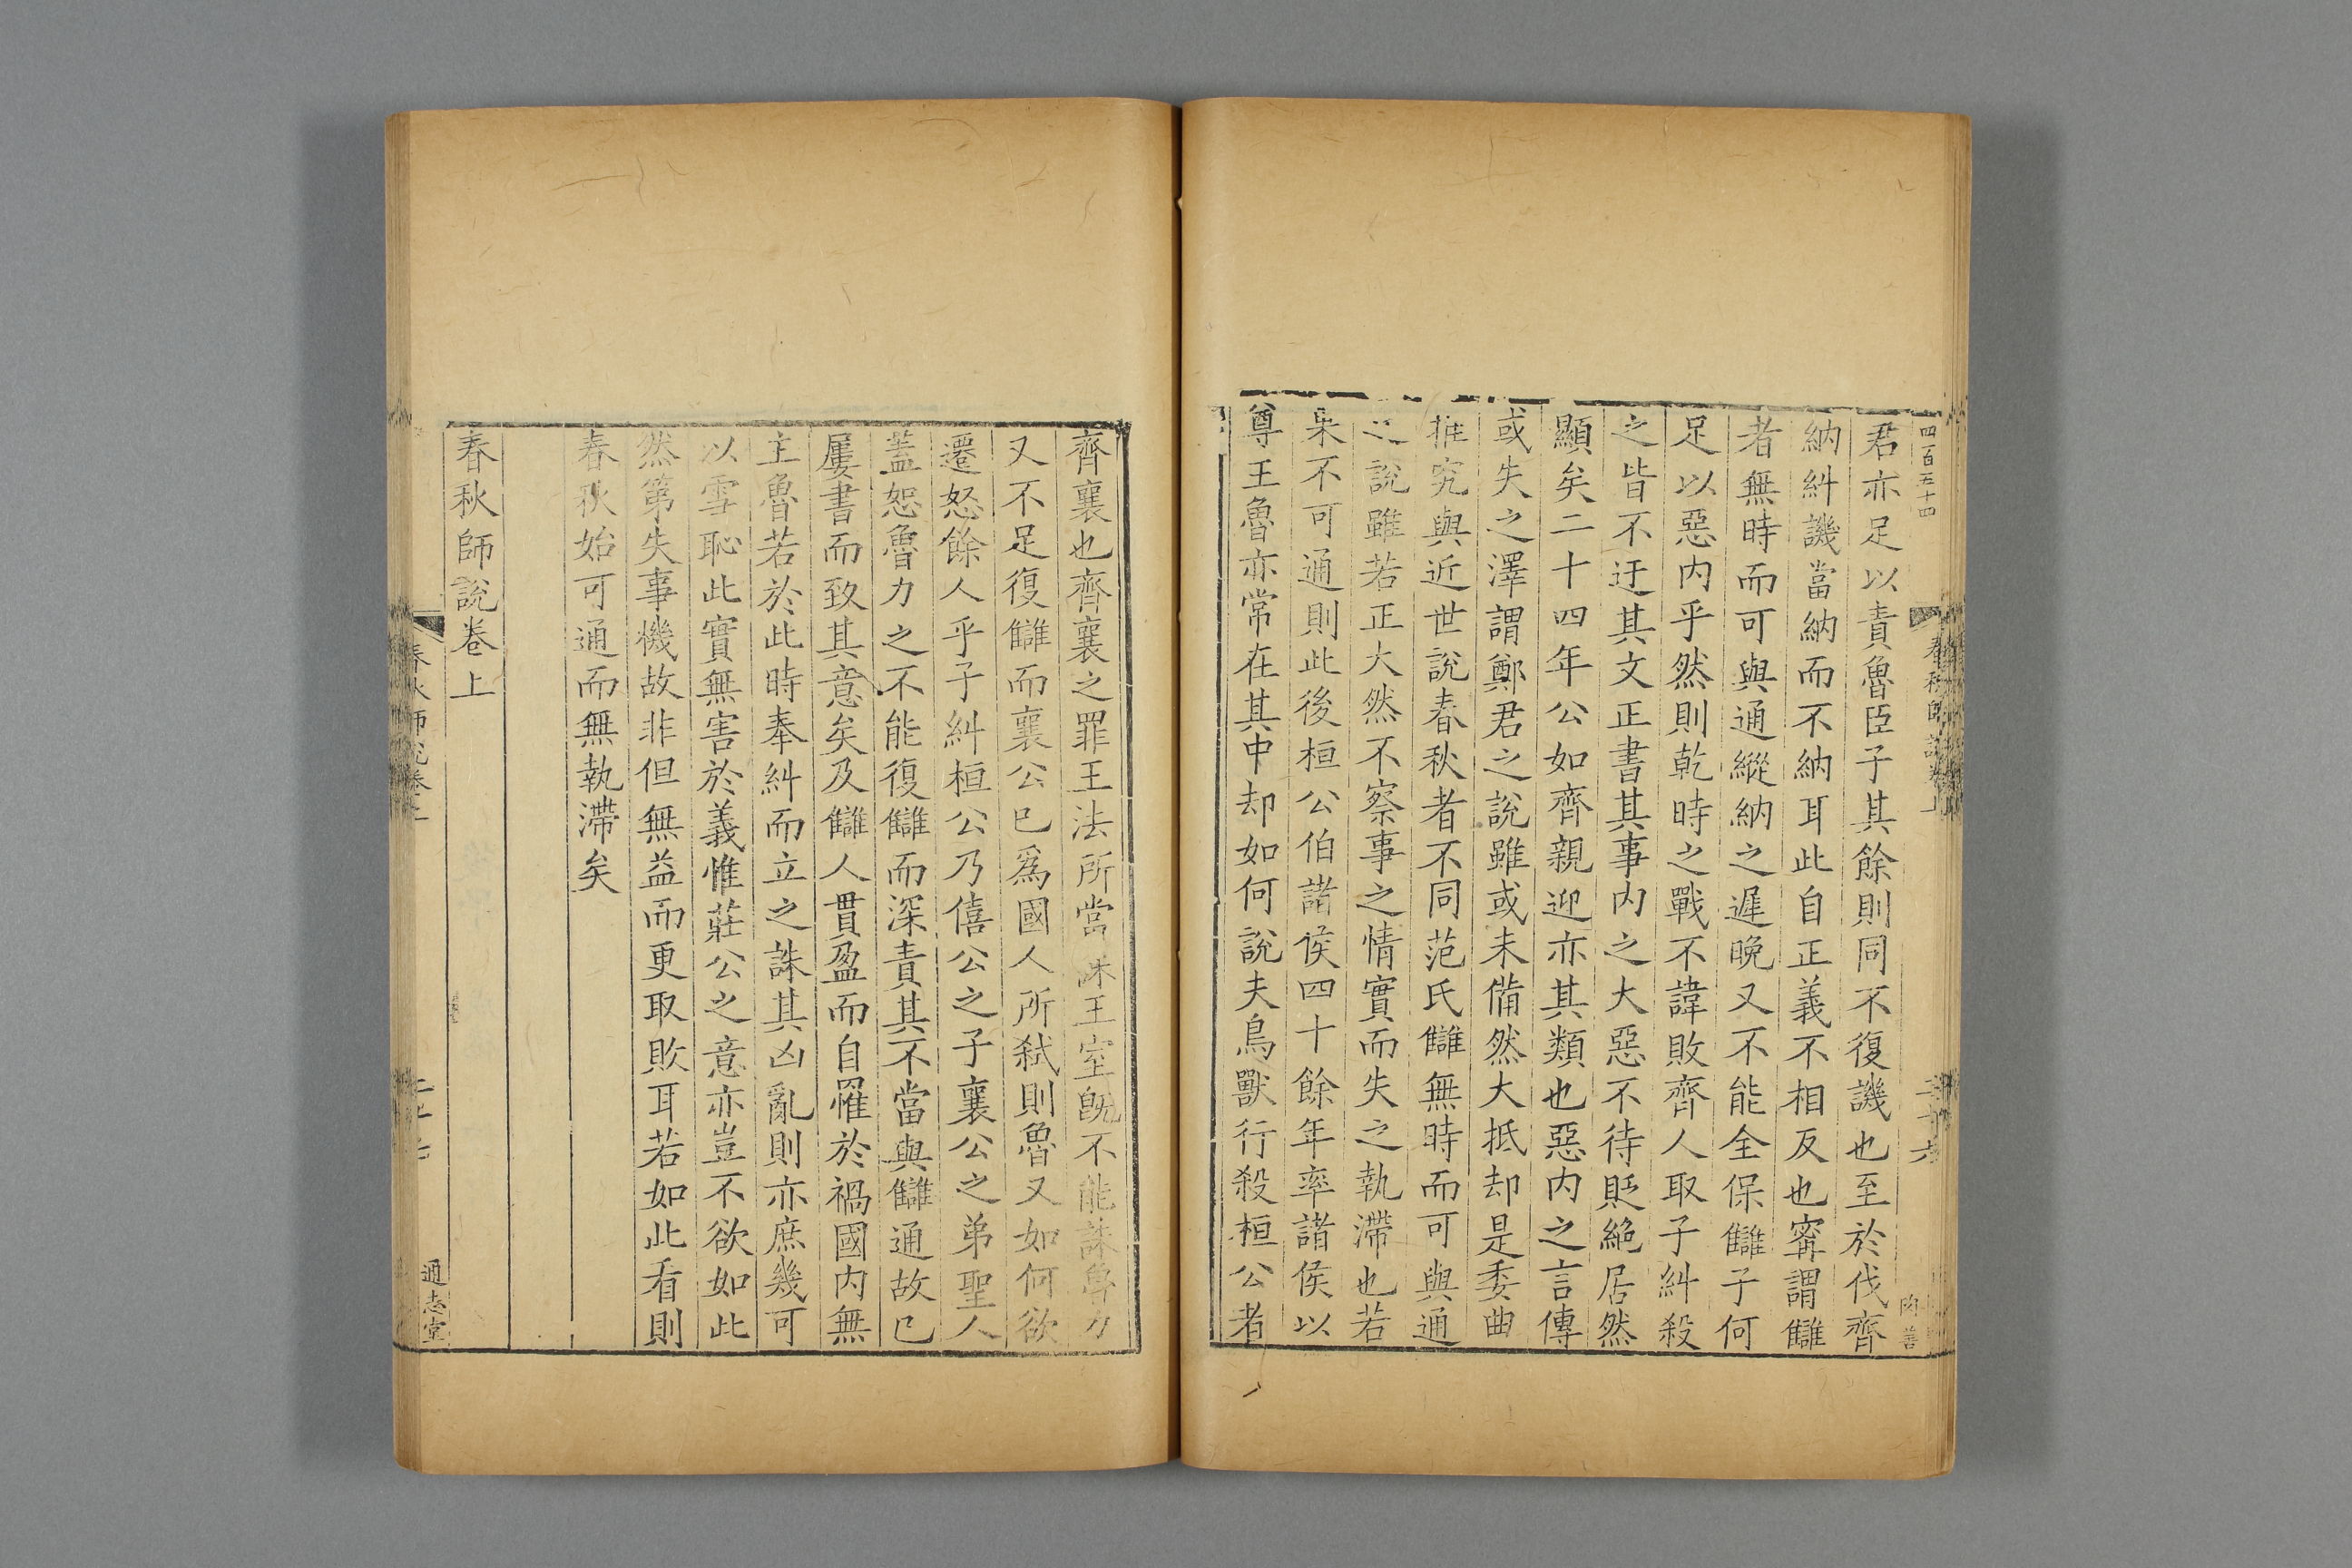 四百五十四
君亦足以責魯臣子其餘則同不復譏也至於伐齊
納糾譏當納而不納耳此自正義不相反也寗謂讎
者無時而可與通縱納之遲晚又不能全保讎子何
足以惡內乎然則乾時之戰不諱敗齊人取子糾殺
之皆不迂其文正書其事內之大惡不待貶絶居然
顯矣二十四年公如齊親迎亦其類也惡內之言傳
或失之澤謂鄭君之說雖或未備然大抵却是委曲
推究與近世說春秋者不同范氏讎無時而可與通
之說雖若正大然不察事之情實而失之執滯也若
果不可通則此後桓公伯諸侯四十餘年率諸侯以
尊王魯亦常在其中却如何說夫鳥獸行殺桓公者
齊襄也齊襄之罪王法所當誅王室旣不能誅魯力
又不足復讎而襄公已爲國人所弑則魯又如何欲
遷怒餘人乎子糾桓公乃僖公之子襄公之弟聖人
蓋恕魯力之不能復讎而深責其不當與讎通故已
屢書而致其意矣及讎人貫盈而自罹於禍國內無
主魯若於此時奉糾而立之誅其凶亂則亦庶幾可
以雪恥此實無害於義惟莊公之意亦豈不欲如此
然第失事機故非但無益而更取敗耳若如此看則
春秋始可通而無執滯矣
春秋師說卷上
通志堂